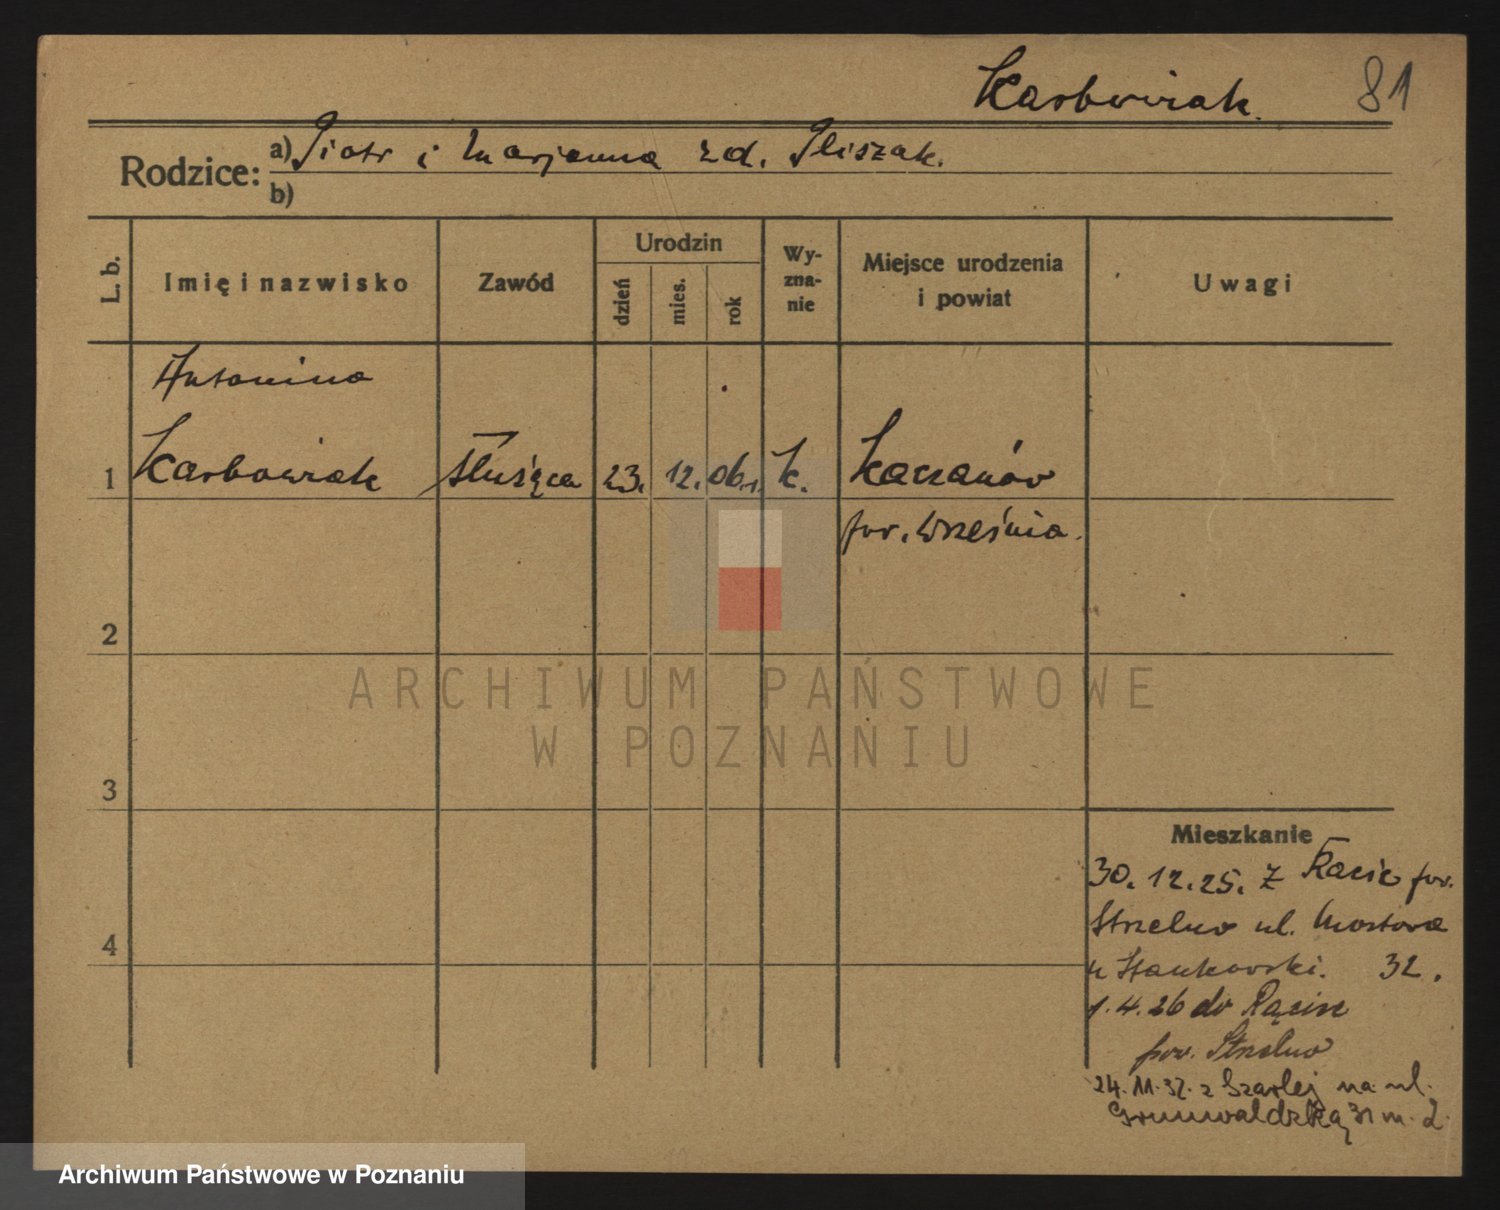 Karbowiak. 81
Rodzice: a) Piotr i Marjanna zd. Pliszak.
b)
L. b.
Imię i nazwisko
Zawód
Urodzin
dzień
mies.
rok
Wy-
zna-
nie
Miejsce urodzenia
i powiat
Uwagi
Antonina
1 Karbowiak służąca 23. 12. 06. k. Kaczanów
pow. Września.
2
ARCHIWUM PAŃSTWOWE
W POZNANIU
3
Mieszkanie
30. 12. 25. z pow.
4
Strzelno ul. Mostowa
u Stankowski. 32.
1. 4. 26 do
pow. Strzelno
24. 11. 32. z Szarlej na ul.
Grunwaldzką 31 m. 2.
Archiwum Państwowe w Poznaniu